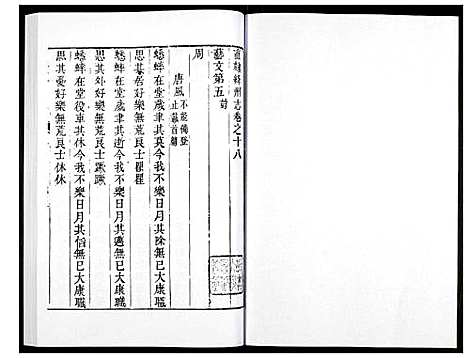 直隸絳州志卷之十八
藝文第五前
周
唐風 不能備登
止錄首篇
蟋蟀在堂歲聿其莫今我不樂日月其除無已大康職
思其居好樂無荒良士瞿瞿
蟋蟀在堂歲聿其逝今我不樂日月其邁無已大康職
思其外好樂無荒良士蹶蹶
蟋蟀在堂役車其休今我不樂日月其慆無已大康職
思其憂好樂無荒良士休休